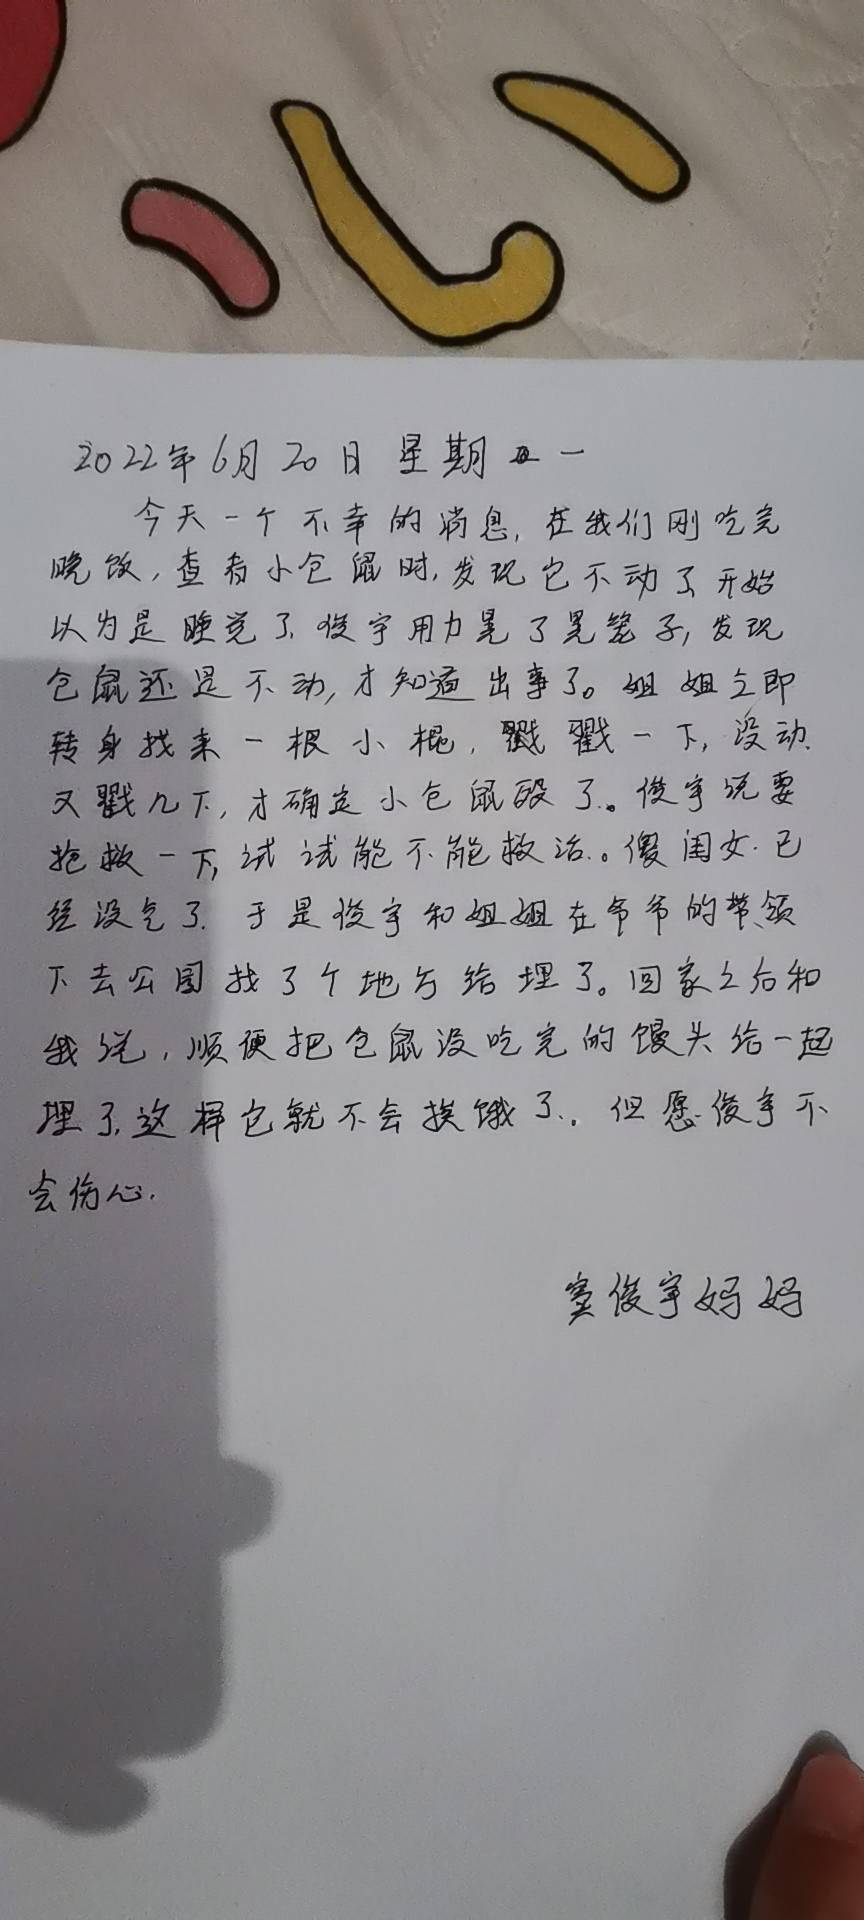 2022年6月20日 星期一
今天一个不幸的消息,在我们刚吃完
晚饭,查看小仓鼠时,发现它不动了,开始
以为是睡觉了,俊宇用力晃了晃笼子,发现
仓鼠还是不动,才知道出事了。姐姐立即
转身找来一根小棍,戳戳一下,没动,
又戳几下,才确定小仓鼠死了。俊宇说要
抢救一下,试试能不能救活。傻闺女.已
经没气了.于是俊宇和姐姐在爷爷的带领
下去公园找了个地方给埋了。回家之后和
我说,顺便把仓鼠没吃完的馒头给一起
埋了,这样它就不会挨饿了.。但愿俊宇不
会伤心.
窦俊宇妈妈